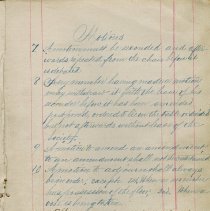 Motions
7. A motion must be seconded and after-
wards repeated from the chair before it
is debated.
8. Any member having made a motion
may withdraw it with the leave of his
seconder before it has been amended
but not afterwards without leave of the
society.
9. A motion to amend an amendment
to an amendment shall not be entertained
10. A motion to adjourn shall always
be in order, except when a member
has possession of the floor, or when a
vote is being taken